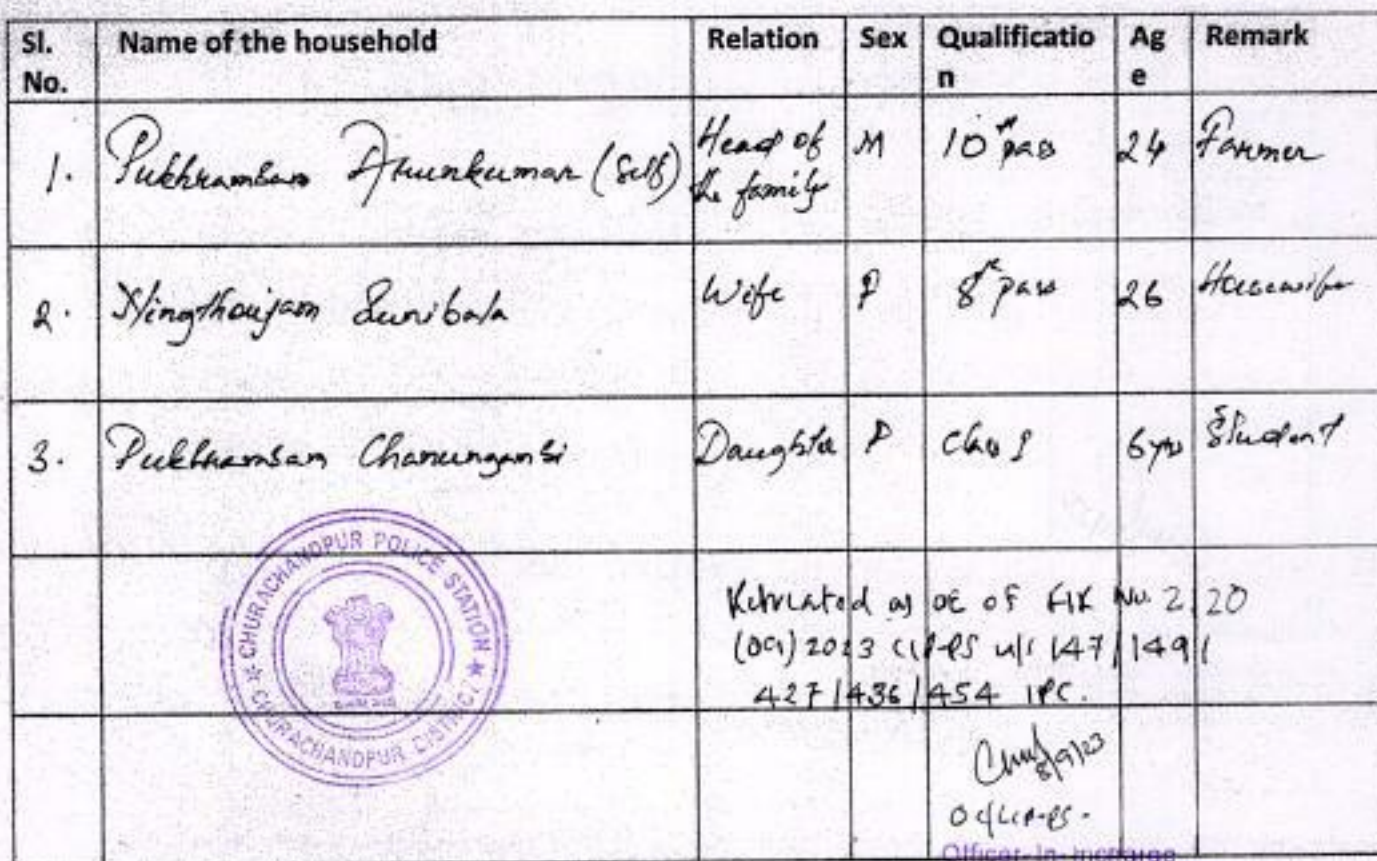 Sl. No. Name of the household Relation Sex Qualification Age Remark
1. Pukhrambam Arunkumar (Self) Head of the family M 10th pass 24 Farmer
2. Ningthoujam Sunibala Wife F 8th pass 26 Housewife
3. Pukhrambam Chanunganbi Daughter F Class I 6yrs Student
CHURACHANDPUR POLICE STATION
CHURACHANDPUR DISTRICT
as of FIR No. 2 20
2023 CCP-PS u/s 147/149/
427/436/454 IPC.
8/9/23
OC/CCP-PS.
Officer-In-